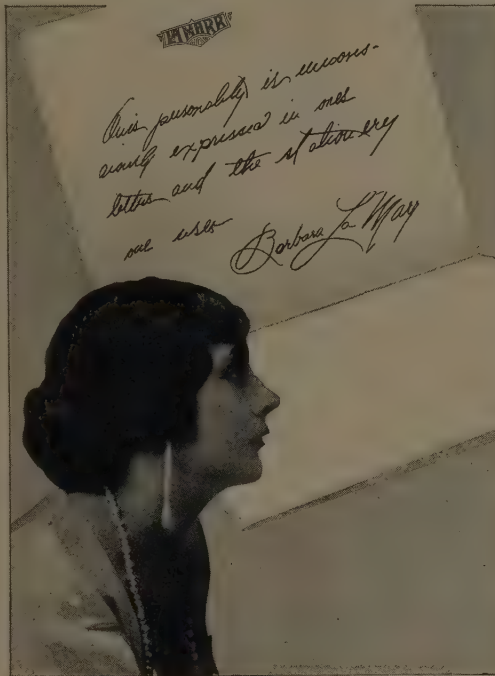 LA MARR
Ones personality is uncons-
ciously expressed in ones
letters and the stationery
one uses
Barbara La Marr